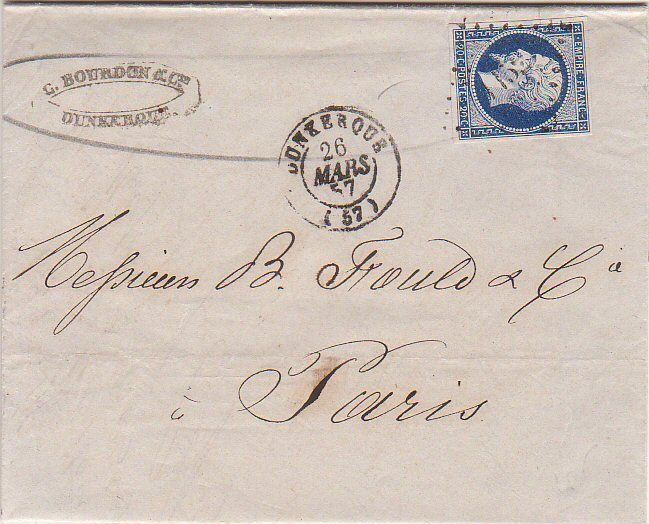 C. BOURDON & CIE
DUNKERQUE
EMPIRE FRANC
20 C POSTES 20 C
DUNKERQUE
26
MARS
57
(57)
Messieurs B. Fould & Cie
à Paris